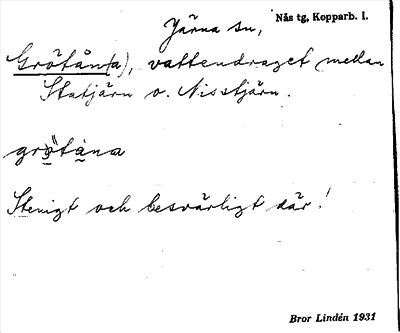 Järna sn, Nås tg, Kopparb. l.
Grötån(a), vattendraget mellan
Statjärn o. Nisstjärn.
grötåna
Stenigt och besvärligt där!
Bror Lindén 1931